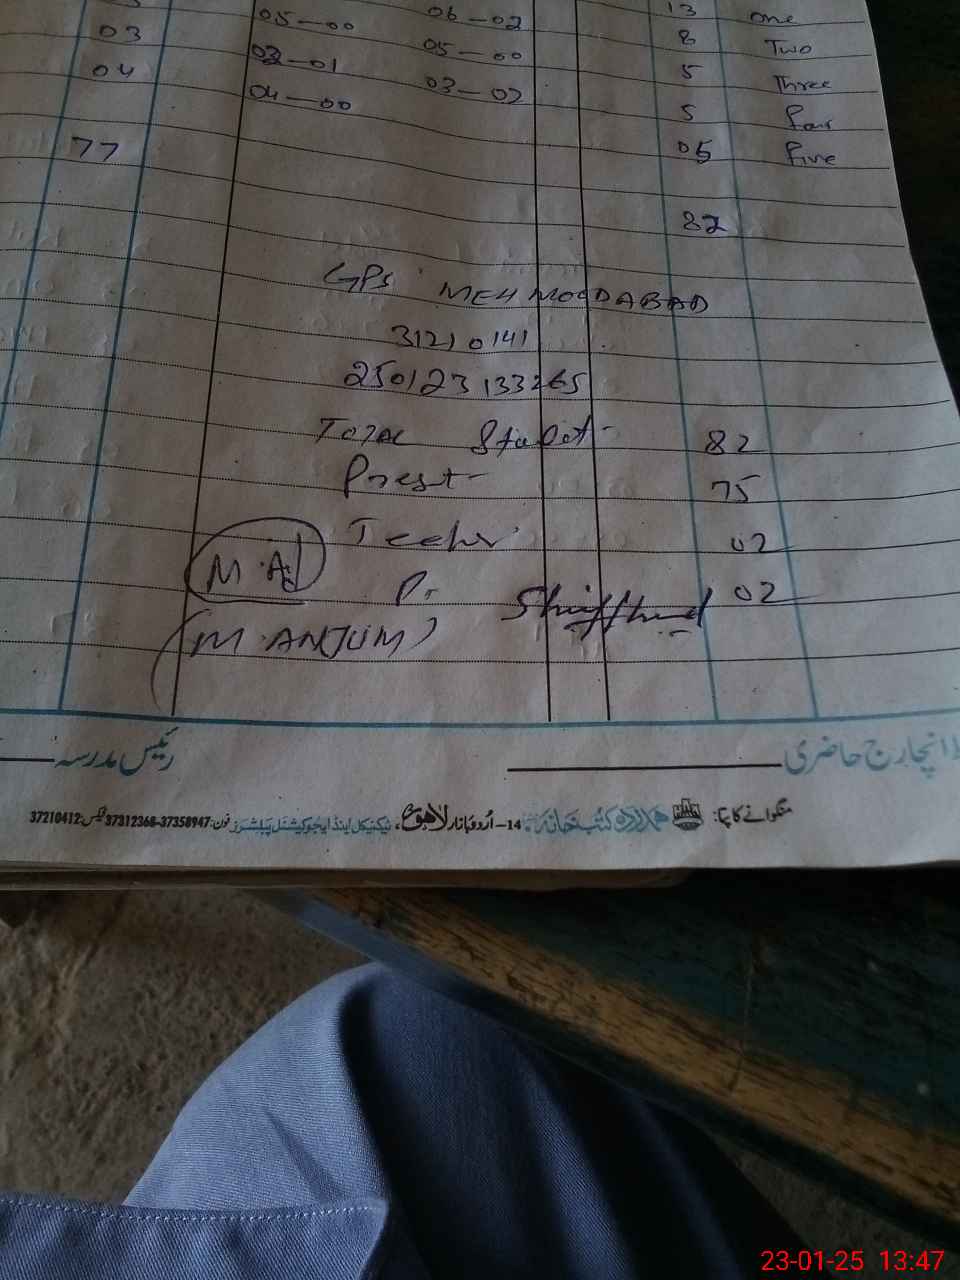 05-00 06-02 13 one
03 8 Two
02-01 05-00 5 Three
04 03-02
04-00 5 four
77 05 five
82
GPS MEHMOODABAD
31210141
250123133265
Total 82
Prest 75
Teehr 02
M.A P. 02
(M.ANJUM)
رئیس مدرسہ
انچارج حاضری
منگوانے کا پتہ: ہمدرد کتب خانہ 14-اُردو بازار لاہور، ٹیکنیکل اینڈ ایجوکیشنل پبلشرز فون: 37358947-37312368 فیکس: 37210412
23-01-25 13:47